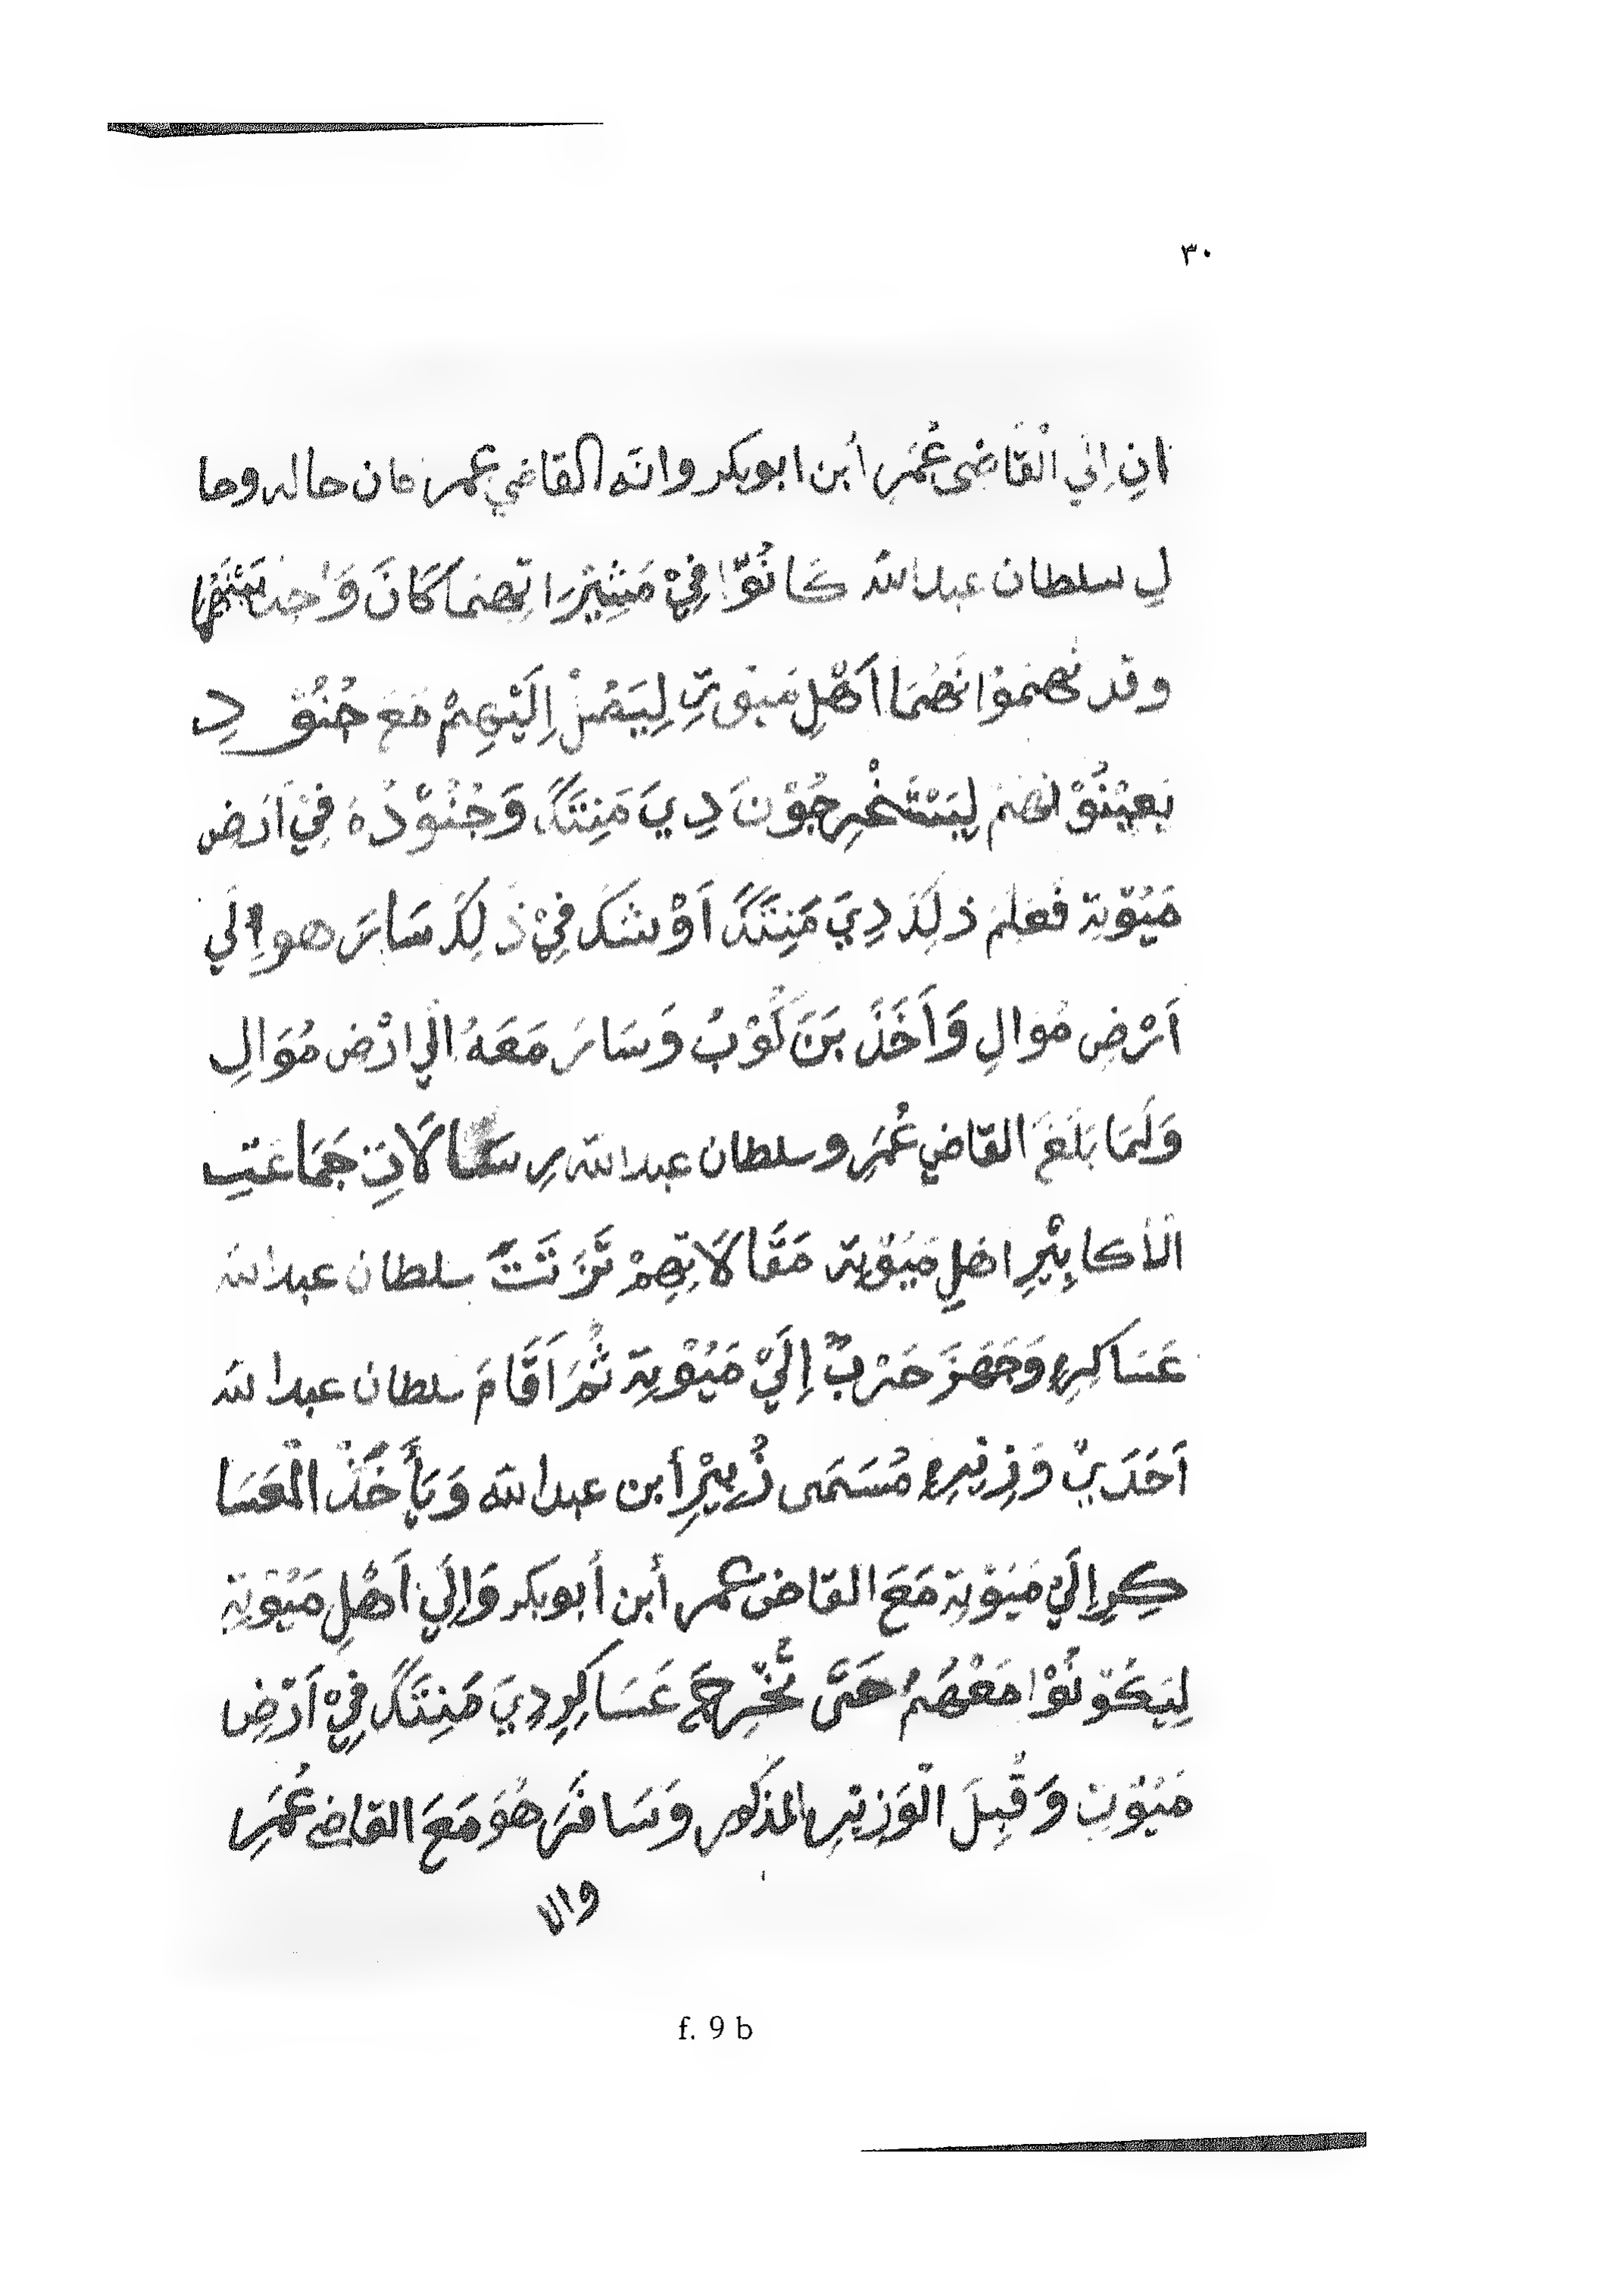 ٣٠
انِ اِلي الْقاضى عُمَرِ أبن ابوبكر وانّه القاضي عمر كان حاله وحا
لِ سلطان عبد الله كَانُوّا فِيْ مَشِيْرَاتِهِمَا كَانَ وَاحِد
وقد اَهْلِ مَيُوتِ لِيَصْلْ اِلَيْهِمْ مَعَ جُنُوْدِ
لِيَسْتَخْرِجُوْنَ دِيَ مَنِتَكَ وَجُنُوْدُهُ فِيْ اَرَض
مَيُوْتة فَعَلِمَ ذلِكَ دِيَ مَنِتَكَ اَوْ شَكَ فِيْ ذَلِكَ سَارَ هو اِلَي
اَرْضِ مُوَالِ وَاَخَذَ بَنَ كُوْبُ وَسَارَ مَعَهُ الَي ارْض مُوَالِ
وَلَمَا بَلَغَ القاضي عُمَرِ وسلطان عبد الله رِسَالَاتِ جَمَاعَتِ
الْأكابِيْرِ اهلِ مَيُوْتة مَقَالَاتِهِمْ سلطان عبد الله
عَسَاكِرِهِ وَجَهَزَ حَرْبٌ اِلَيْ مَيُوْتِة ثُمَ اَقَامَ سلطان عبد الله
اَحَدَيْ وَزِيْرِهِ مُسَمَى زُبِيْرِ أبن عبد الله وَيَأَخُذْ الْعَسَا
كِرِ اِلَيْ مَيُوْتِة مَعَ القاض عمر أبن أبوبكر وَاِلَي اَهْلِ مَيُوْتِة
لِيَكُوْنُوْا مَعْهُمُ حَتَّى يُخْرِجَ عَسَاكِرِ دِيَ مَنِتَكَ فِيْ اَرْضِ
مَيُوْتِ وَقُبِلَ الْوَزِيْرِ المذكور وَسَافَرَ هُوَ مَعَ القاضِ عُمَرِ
والا
f. 9 b